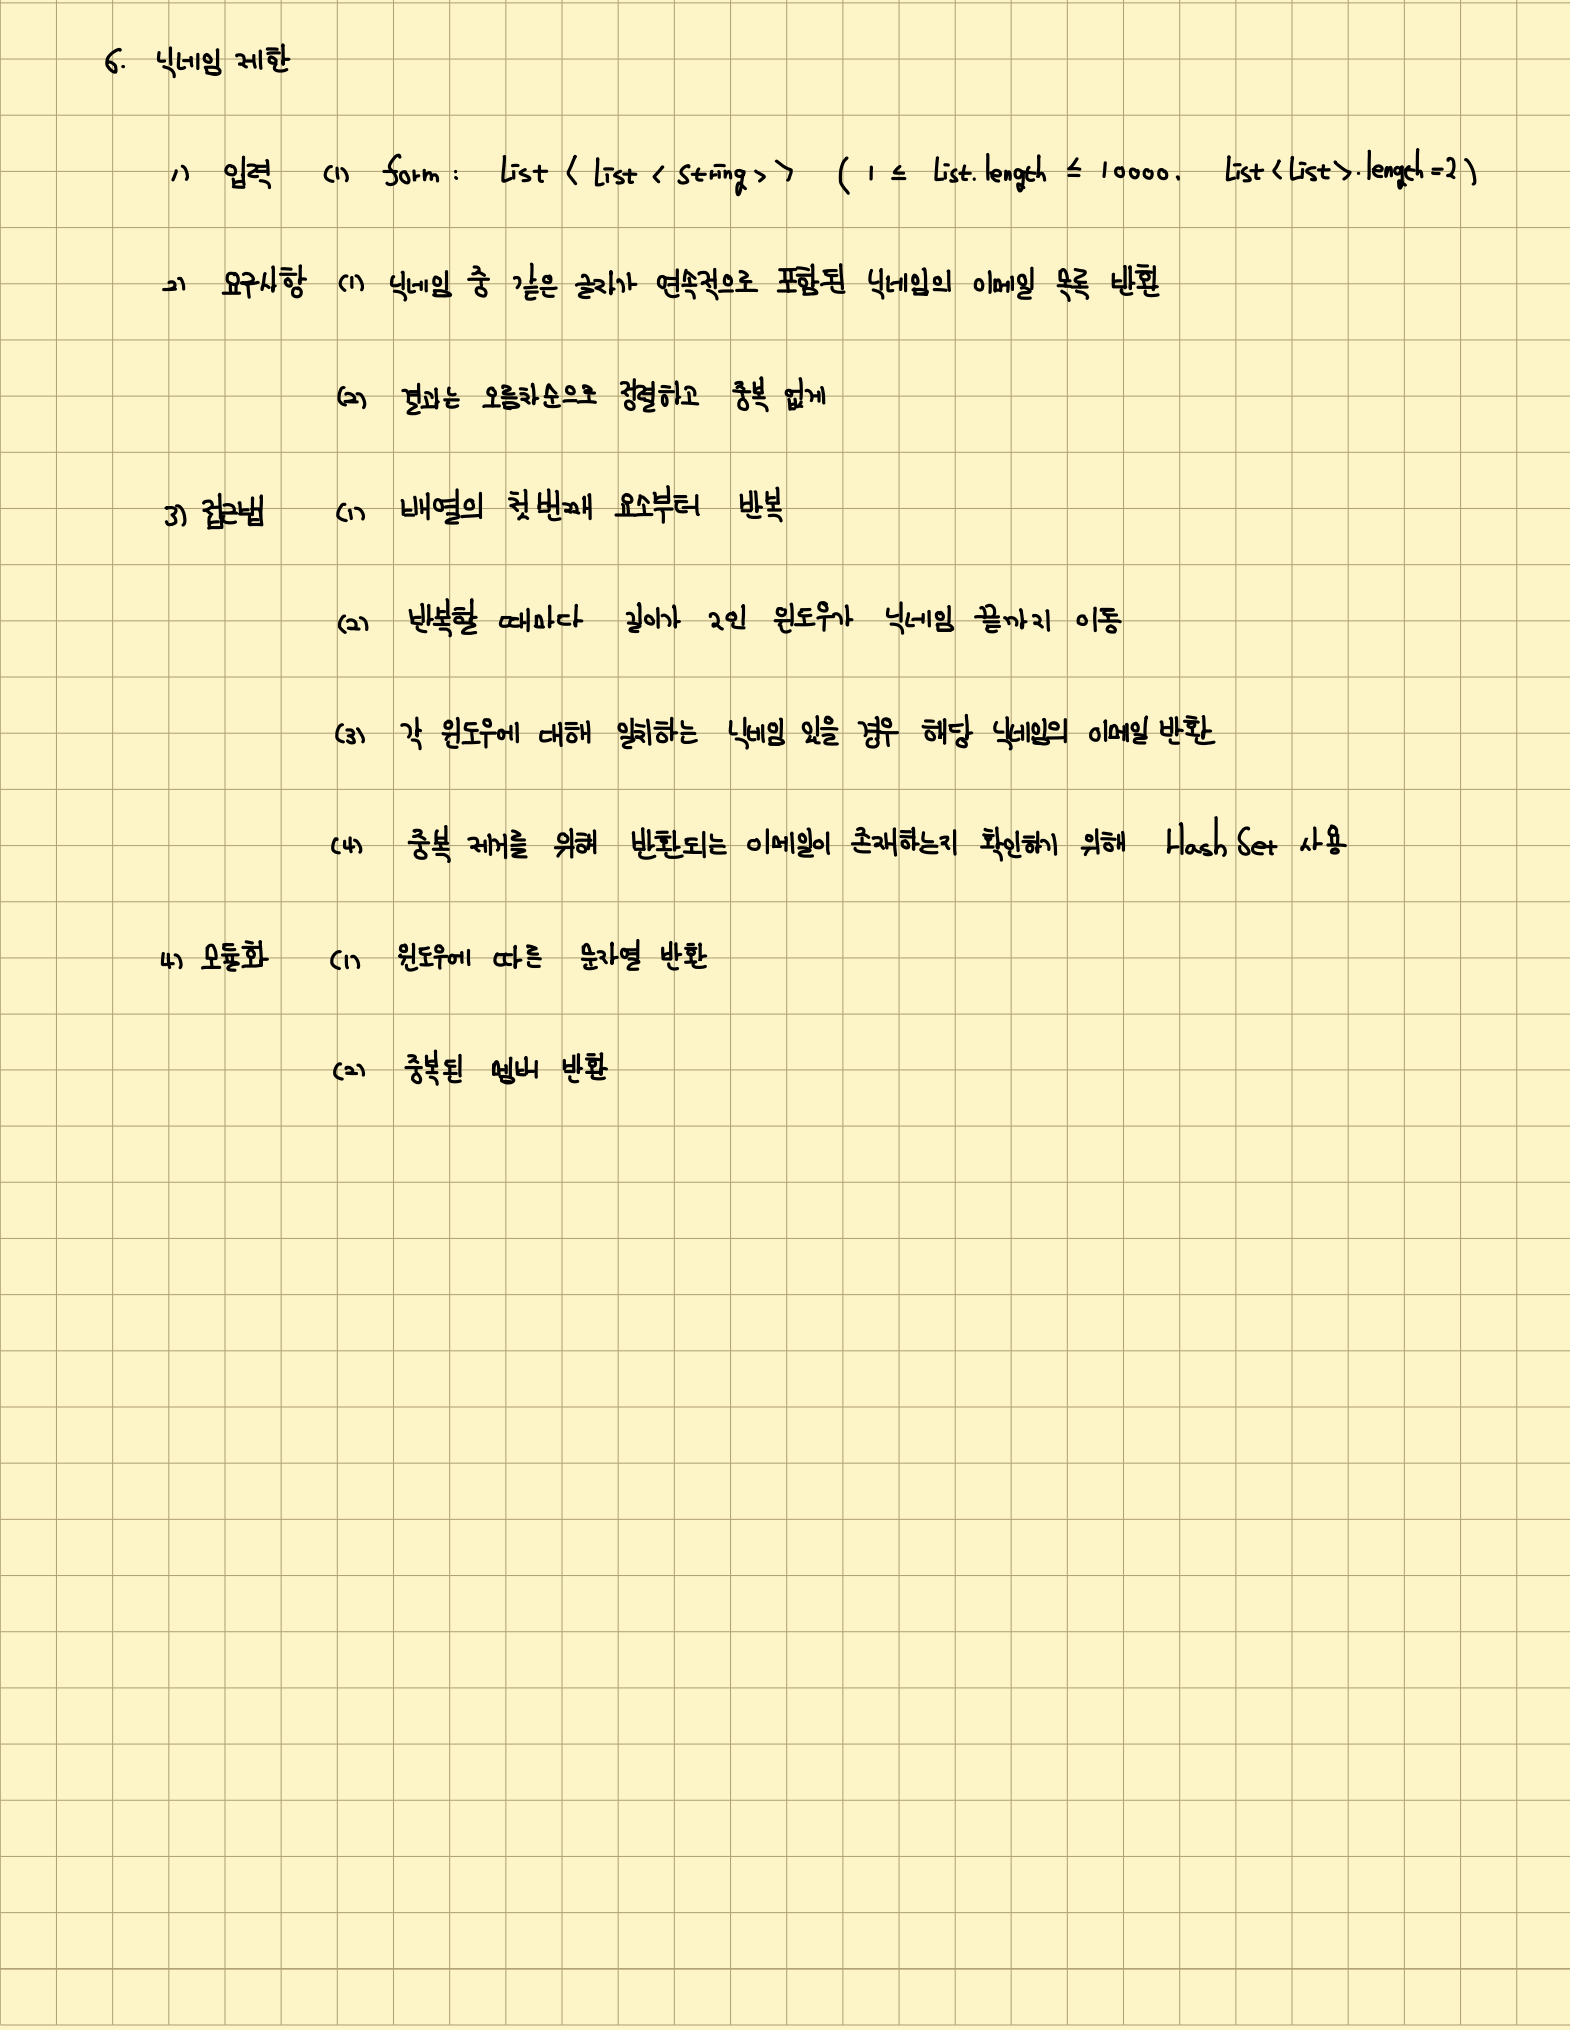 6. 닉네임 제한
1) 입력 (1) form : List < List < String > > ( 1 ≤ List.length ≤ 10000. List<List>.length = 2 )
2) 요구사항 (1) 닉네임 중 같은 글자가 연속적으로 포함된 닉네임의 이메일 목록 반환
(2) 결과는 오름차순으로 정렬하고 중복 없게
3) 접근법 (1) 배열의 첫 번째 요소부터 반복
(2) 반복할 때마다 길이가 2인 윈도우가 닉네임 끝까지 이동
(3) 각 윈도우에 대해 일치하는 닉네임 있을 경우 해당 닉네임의 이메일 반환
(4) 중복 제거를 위해 반환되는 이메일이 존재하는지 확인하기 위해 Hash Set 사용
4) 모듈화 (1) 윈도우에 따른 문자열 반환
(2) 중복된 멤버 반환